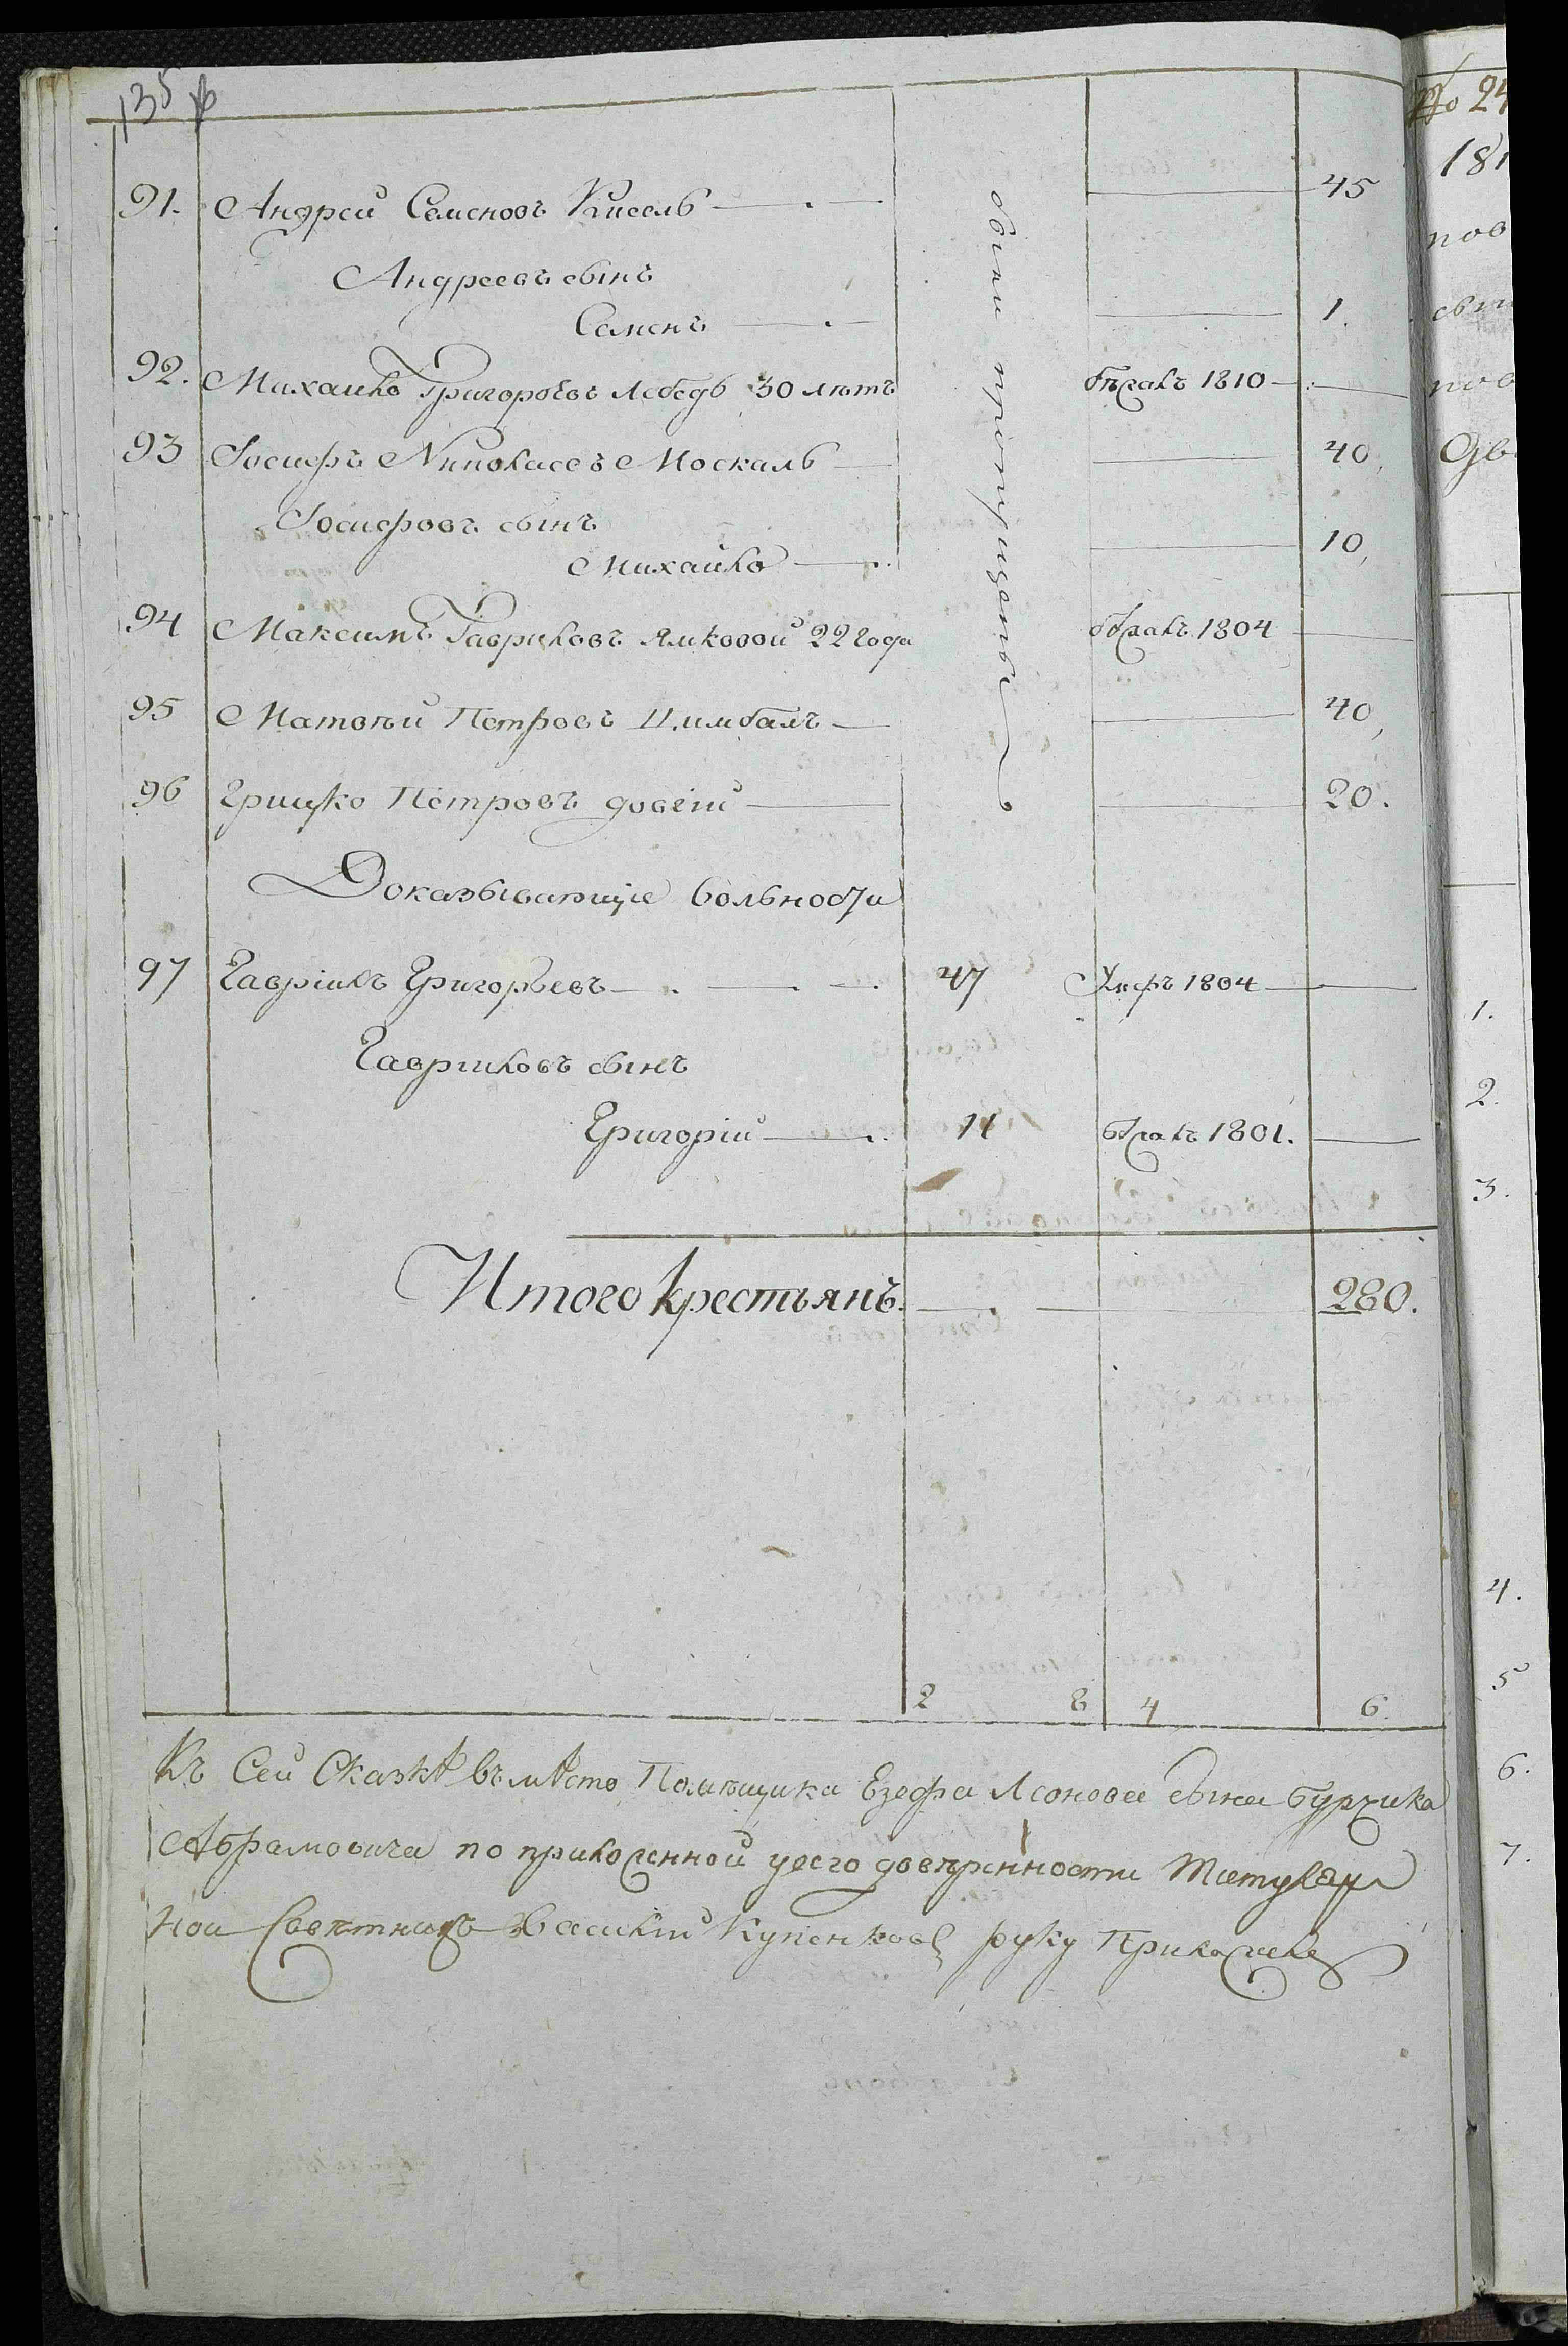 135
91. Андрей Семеновъ Кисель 45
Андреевъ сынъ
Семенъ 1.
92. Михайло Григорьевъ Лебедь 30 лѣтъ бѣжалъ 1810
93 Іосифъ Николаевъ Москаль 40,
Іосифовъ сынъ
Михайло 10,
94 Максимъ Гавриловъ Ямковой 22 года бѣжалъ 1804
95 Матвѣй Петровъ Цимбалъ 40,
96 Грицко Петровъ довгій 20.
Доказывающіе вольности
97 Гавріилъ Григорьевъ 47 Умръ 1804
Гавриловъ сынъ
Григорій 11 бѣжалъ 1801.
Итого крестьянъ 280.
2 8 4 6.
Къ Сей Сказкѣ въмѣсто Помѣщика Езефа Леонова сына
Абрамовича по приложенной у его довѣренности Титуляр
ной Совѣтникъ Василій Купенковъ руку Приложилъ
№ 24
181
пов
пов
1.
2.
3.
4.
5
6.
7.